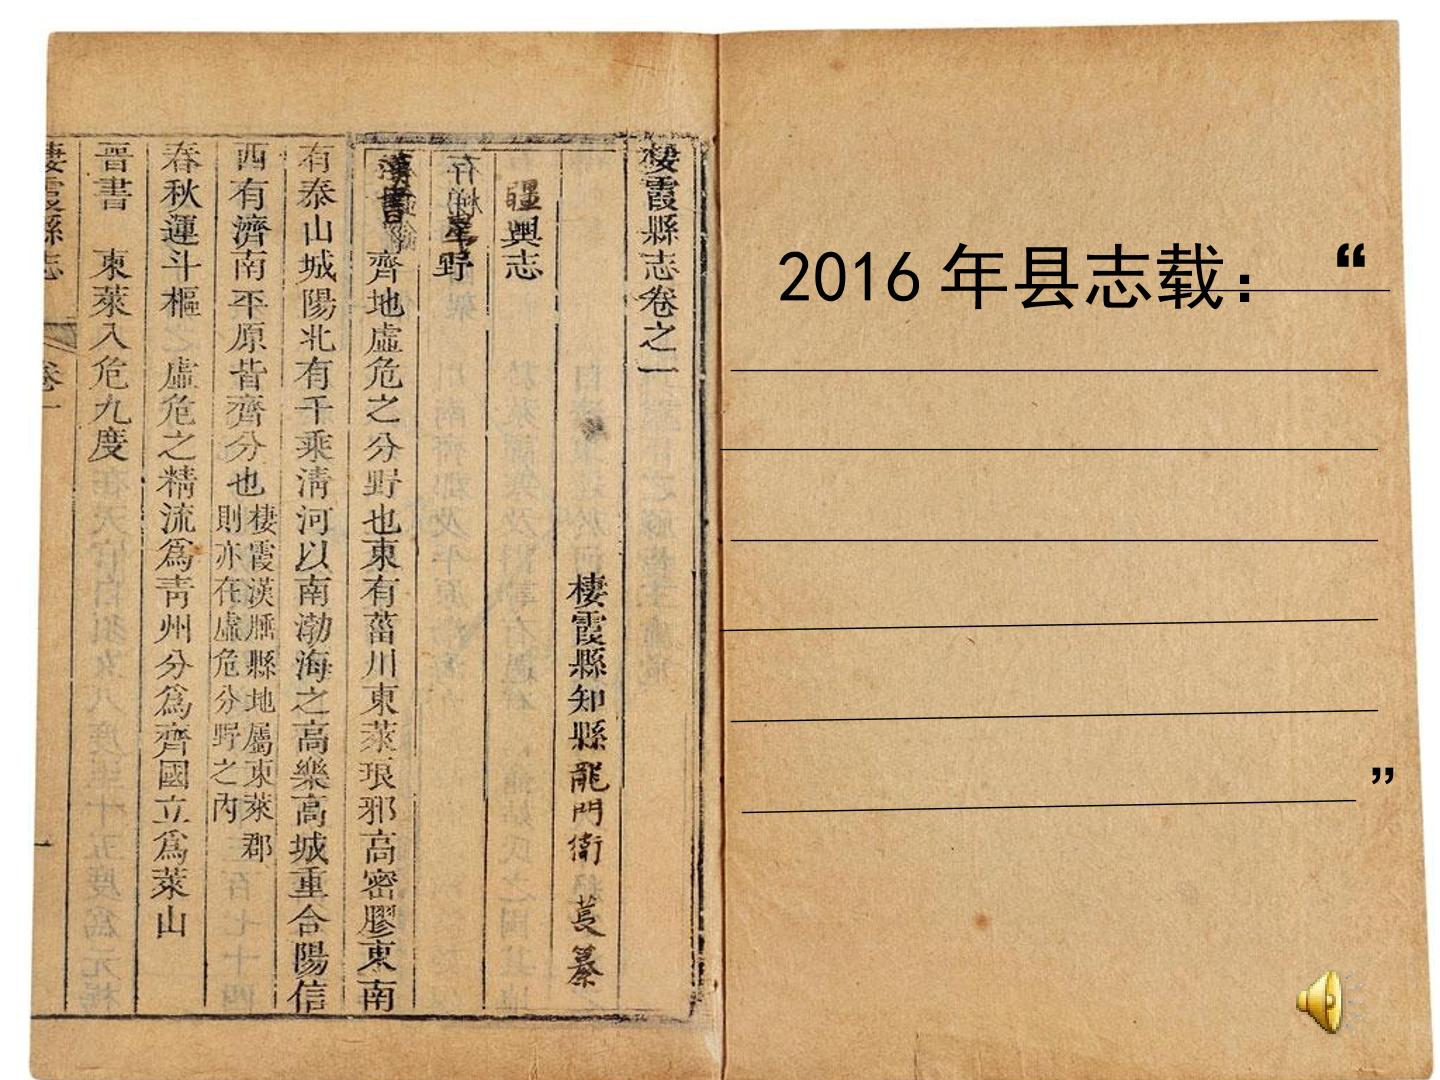 棲霞縣志卷之一
棲霞縣知縣龍門衛萇纂
疆輿志
星野
漢書 齊地虛危之分野也東有菑川東萊琅邪高密膠東南
有泰山城陽北有千乘淸河以南渤海之高樂高城重合陽信
西有濟南平原皆齊分也棲霞漢腄縣地屬東萊郡
則亦在虛危分野之內
春秋運斗樞 虛危之精流爲靑州分爲齊國立爲萊山
晋書 東萊入危九度
棲霞縣志 卷一 一
2016年县志载：“
”